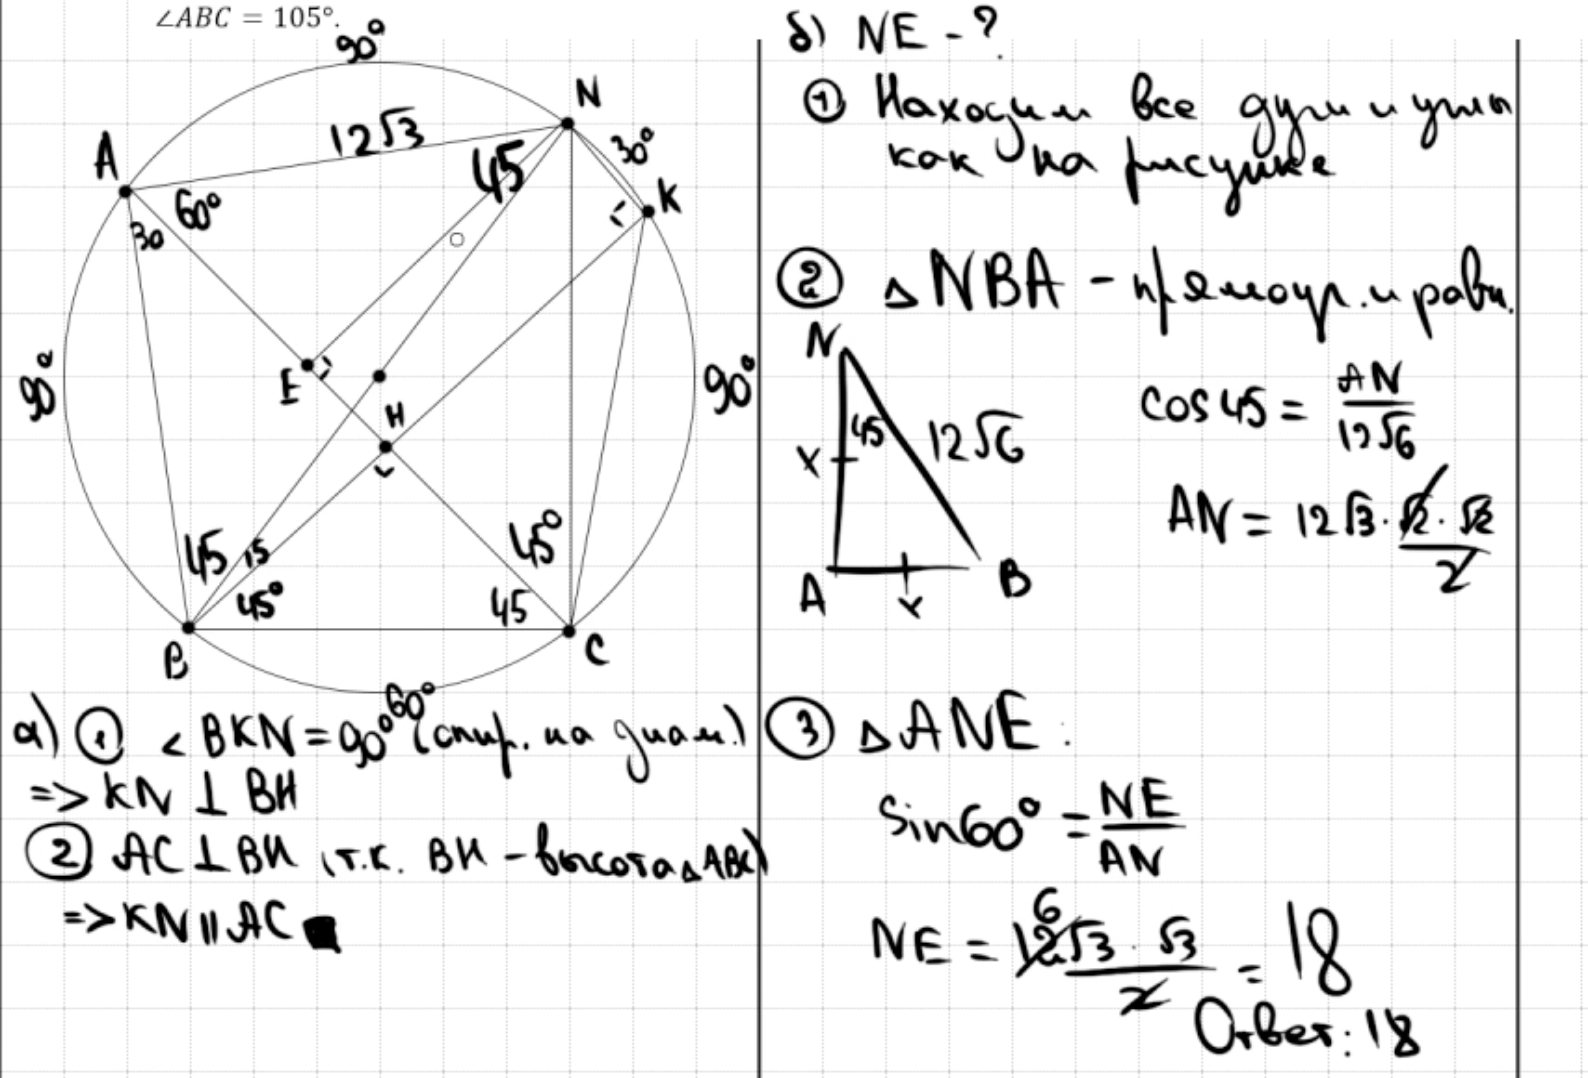 ∠ABC = 105°.
90°
N
12√3
30°
A
45
K
60°
30
90°
E
H
90°
45 15
45°
45°
45
B
C
60°
а) ① < BKN = 90° (опир. на диам.)
=> KN ⊥ BH
② AC ⊥ BH (т.к. BH - высота △ ABC)
=> KN || AC
б) NE - ?
① Находим все дуги и углы
как на рисунке
② △ NBA - прямоуг. и равн.
N
45
x
12√6
A
x
B
cos 45 = AN / 12√6
AN = 12√3 · √2 · √2 / 2
③ △ ANE :
Sin 60° = NE / AN
6
NE = 12√3 · √3 / 2 = 18
Ответ: 18